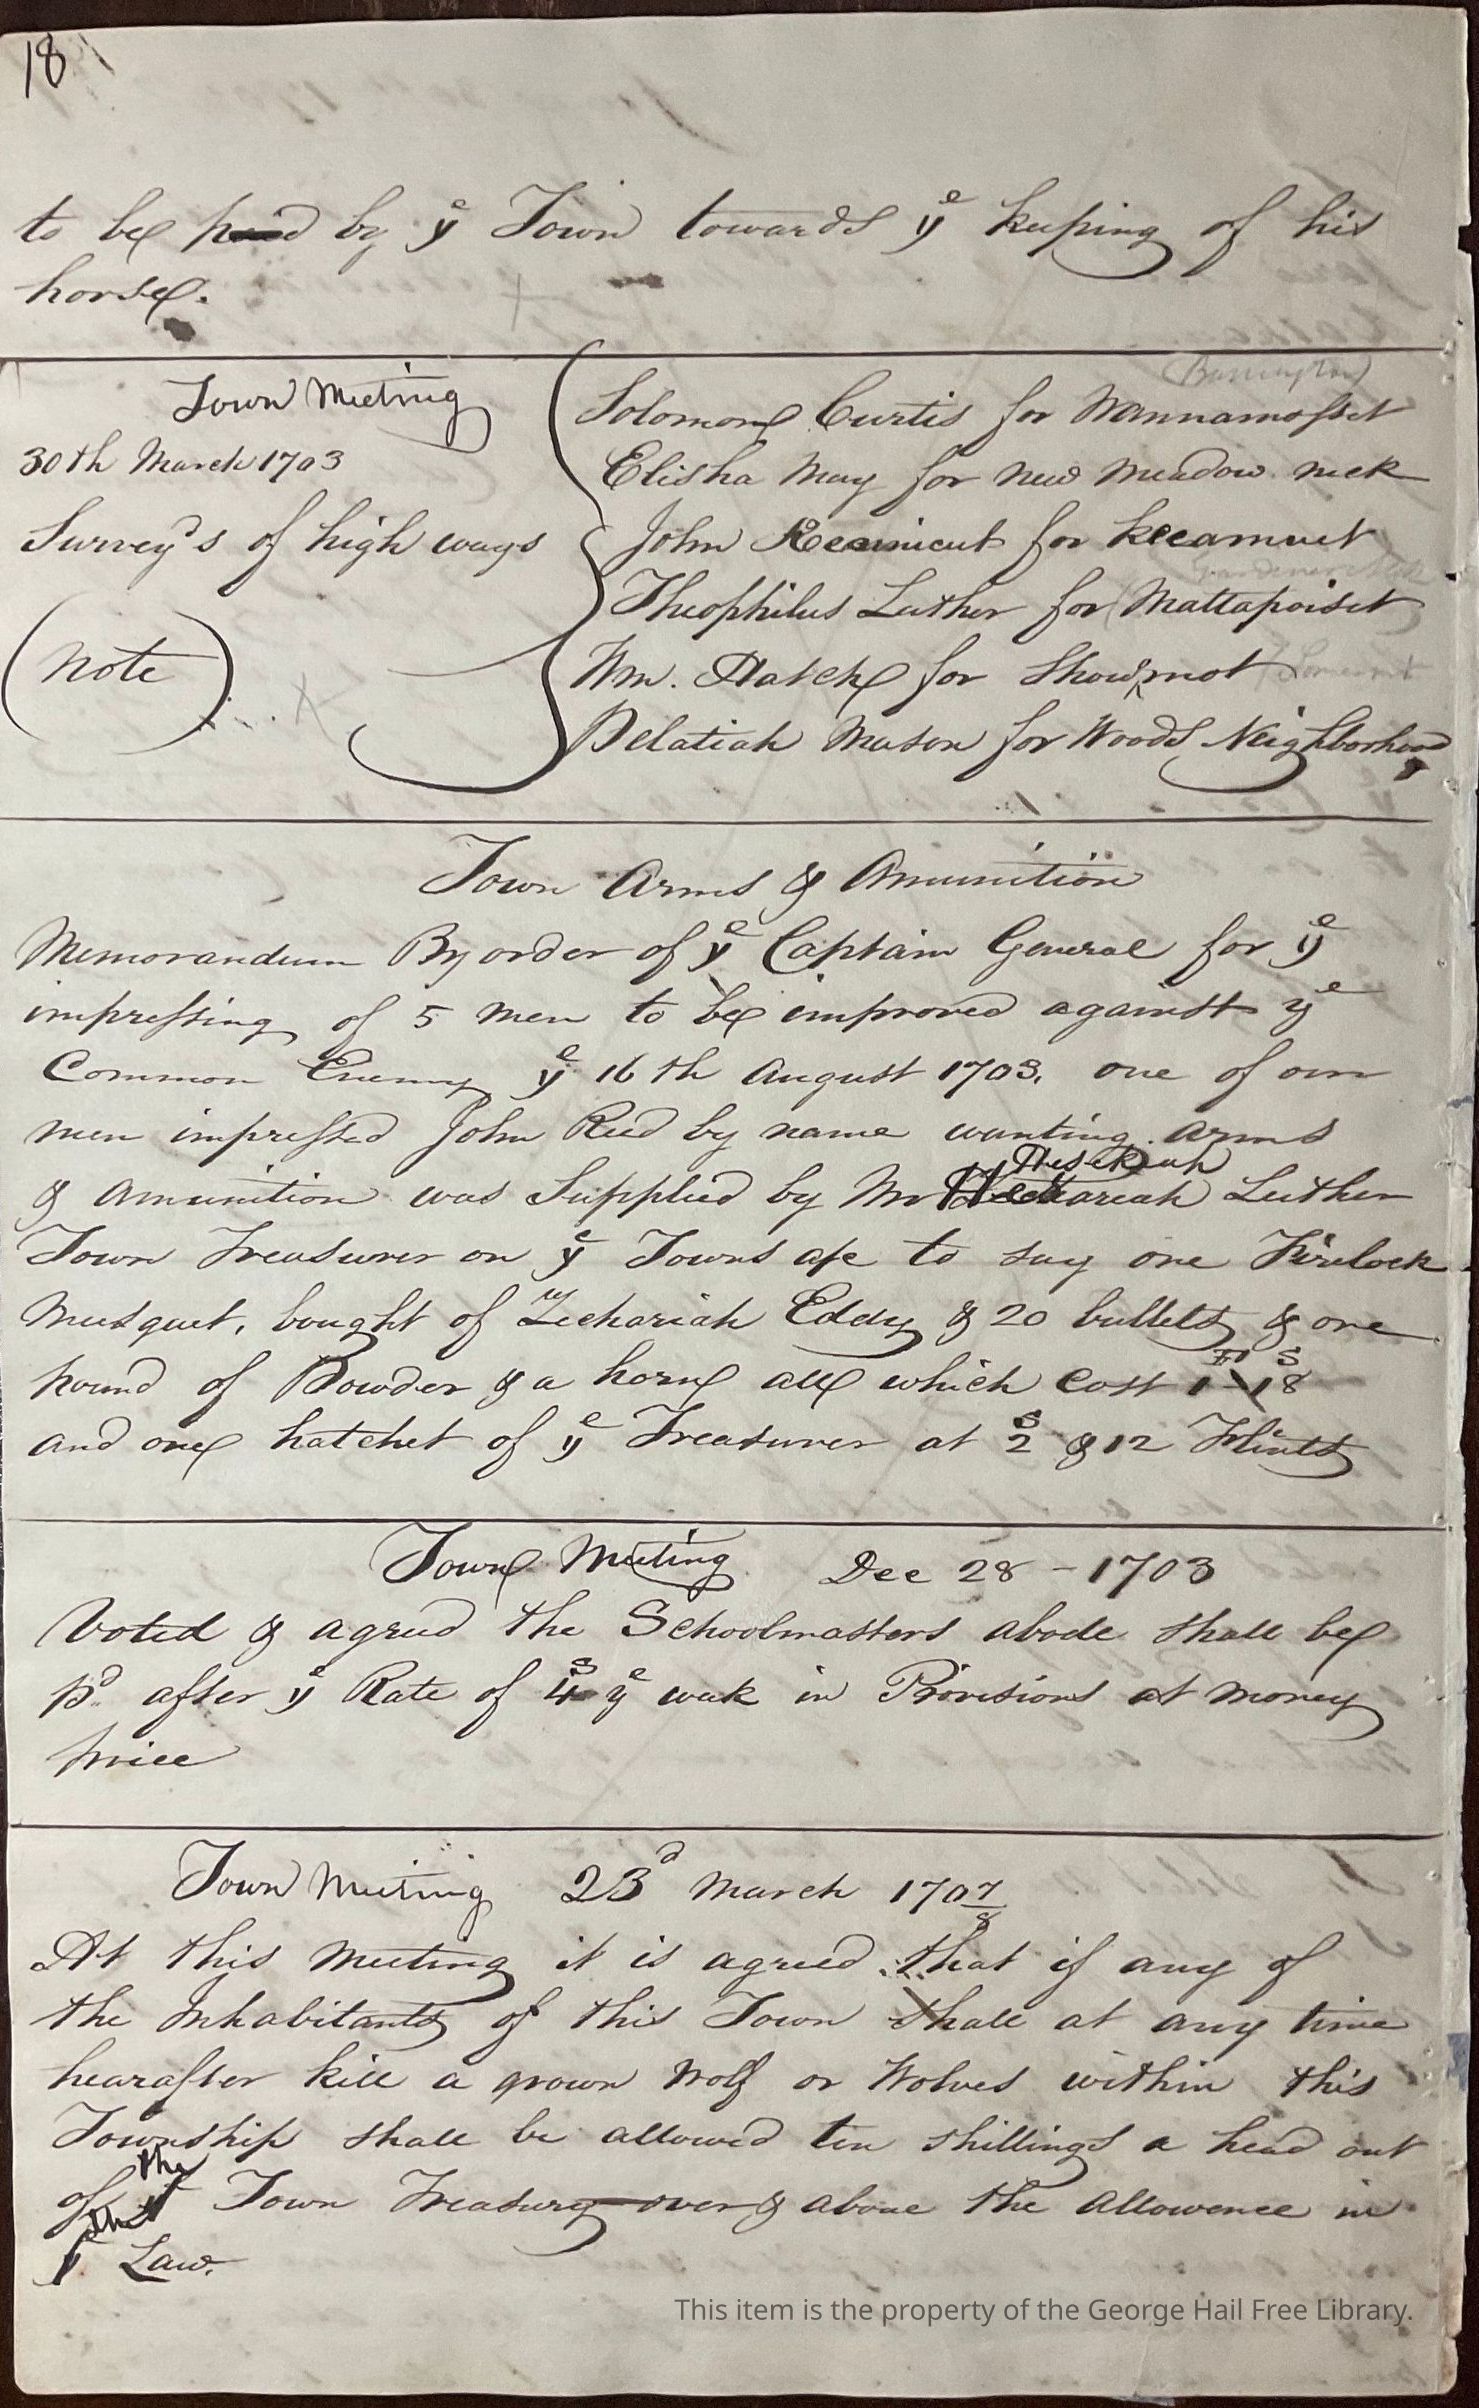 18
to be paid by yᵉ Town towards yᵉ keeping of his
horse.
Town Meeting
30th March 1703
Survey'd's of high ways
(Note)
(Barrington)
Solomon Curtis for Wannamosset
Elisha May for New Meadow neck
John Kennicut for Keeamuet
Gardeners Neck
Theophilus Luther for Mattapoiset
Wm. Hatch for Showamot Somerset
Pelatiah Mason for Woods Neighborhood
Town Arms & Amunition
Memorandum By order of yᵉ Captain General for yᵉ
impressing of 5 men to be improved against yᵉ
Common Enemy yᵉ 16th August 1703. one of our
men impressed John Reed by name wanting arms
& Amunition was Supplied by Mr Hesekiah Luther
Town Treasurer on yᵉ Towns a/c to say one Firelock
Musquet, bought of Zechariah Eddy & 20 bullets & one
pound of Powder & a horn all which Cost 1-18
and one hatchet of yᵉ Treasurer at 2ˢ & 12 Flints
Town Meeting Dec 28 - 1703
Voted & agreed the Schoolmasters abode shall be
pᵈ after yᵉ Rate of 4ˢ yᵉ week in Provisions at money
price
Town Meeting 23ᵈ March 1707/8
At this Meeting it is agreed that if any of
the Inhabitants of this Town shall at any time
hearafter kill a grown Wolf or Wolves within this
Township shall be allowed ten shillings a head out
of the Town Treasury over & above the Allowence in
the Law.
This item is the property of the George Hail Free Library.